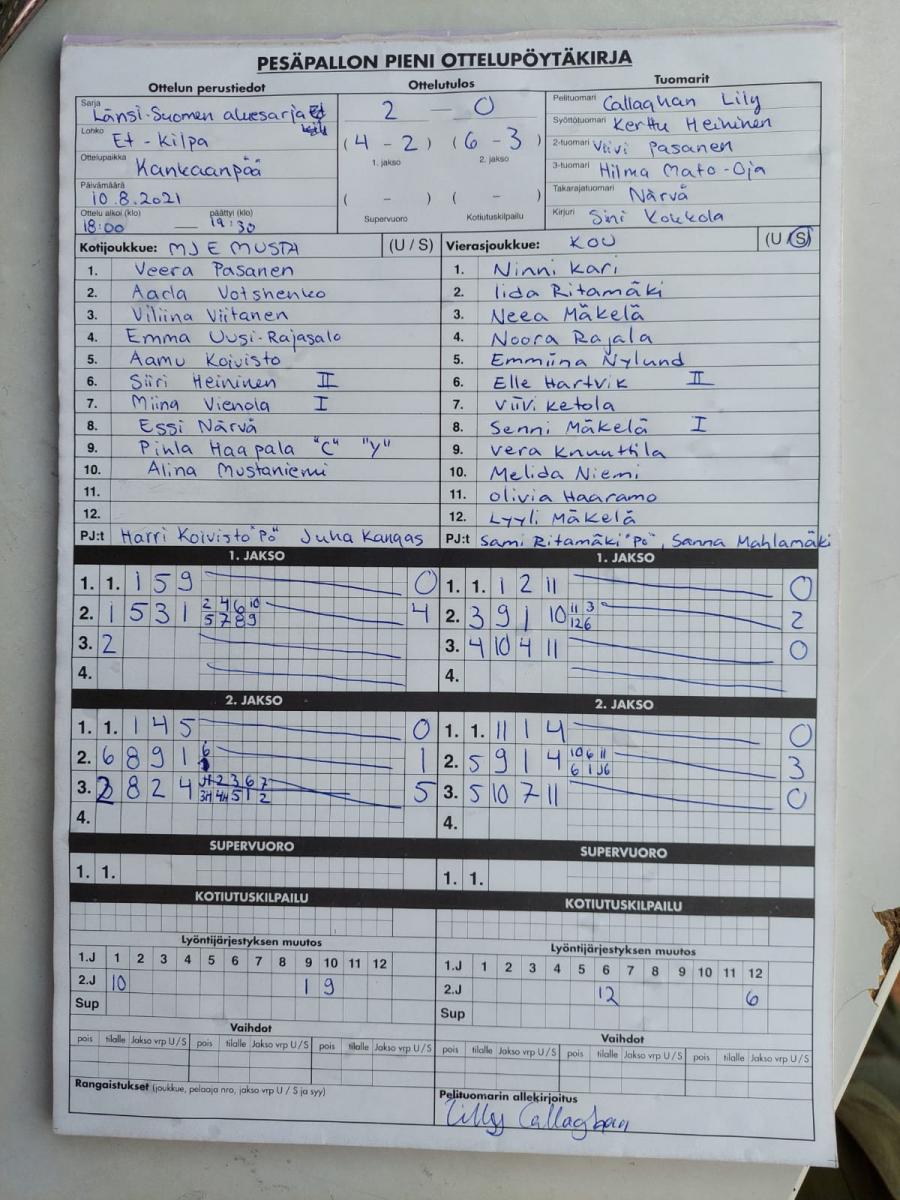 PESÄPALLON PIENI OTTELUPÖYTÄKIRJA
Ottelun perustiedot
Sarja Länsi-Suomen aluesarja
Lohko Et - Kilpa
Ottelupaikka Kankaanpää
Päivämäärä 10.8.2021
Ottelu alkoi (klo) päättyi (klo)
18:00 — 19:30
Ottelutulos
2 — 0
(4 - 2) (6 - 3)
1. jakso 2. jakso
( - ) ( - )
Supervuoro Kotiutuskilpailu
Tuomarit
Pelituomari Callaghan Lily
Syöttötuomari Kerttu Heininen
2-tuomari Viivi Pasanen
3-tuomari Hilma Mato-Oja
Takarajatuomari Närvä
Kirjuri Sini Koukkola
Kotijoukkue: MJE MUSTA (U / S)
1. Veera Pasanen
2. Aada Votshenko
3. Viliina Viitanen
4. Emma Uusi-Rajasalo
5. Aamu Koivisto
6. Siiri Heininen II
7. Miina Vienola I
8. Essi Närvä
9. Pihla Haapala "C" "Y"
10. Alina Mustaniemi
11.
12.
PJ:t Harri Koivisto "Pö" Juha Kangas
Vierasjoukkue: KOU (U / S)
1. Ninni Kari
2. Iida Ritamäki
3. Neea Mäkelä
4. Noora Rajala
5. Emmiina Nylund
6. Elle Hartvik II
7. Viivi Ketola
8. Senni Mäkelä I
9. Vera Knuuttila
10. Melida Niemi
11. Olivia Haaramo
12. Lyyli Mäkelä
PJ:t Sami Ritamäki "Pö", Sanna Mahlamäki
1. JAKSO
1. 1. 1 5 9 0
2. 1 5 3 1 2 4 6 10 4
5 7 8 9
3. 2
4.
1. JAKSO
1. 1. 1 2 11 0
2. 3 9 1 10 11 3 2
12 6
3. 4 10 4 11 0
4.
2. JAKSO
1. 1. 1 4 5 0
2. 6 8 9 1 6 1
3. 2 8 2 4 2 3 6 7 5
3H 4H 5 1 2
4.
2. JAKSO
1. 1. 11 1 4 0
2. 5 9 1 4 10 6 11 3
6 1 J6
3. 5 10 7 11 0
4.
SUPERVUORO
1. 1.
SUPERVUORO
1. 1.
KOTIUTUSKILPAILU
Lyöntijärjestyksen muutos
1.J 1 2 3 4 5 6 7 8 9 10 11 12
2.J 10 1 9
Sup
Vaihdot
pois tilalle Jakso vrp U/S pois tilalle Jakso vrp U/S pois tilalle Jakso vrp U/S
Rangaistukset (joukkue, pelaaja nro, jakso vrp U / S ja syy)
KOTIUTUSKILPAILU
Lyöntijärjestyksen muutos
1.J 1 2 3 4 5 6 7 8 9 10 11 12
2.J 12 6
Sup
Vaihdot
pois tilalle Jakso vrp U/S pois tilalle Jakso vrp U/S pois tilalle Jakso vrp U/S
Pelituomarin allekirjoitus
Lilly Callaghan